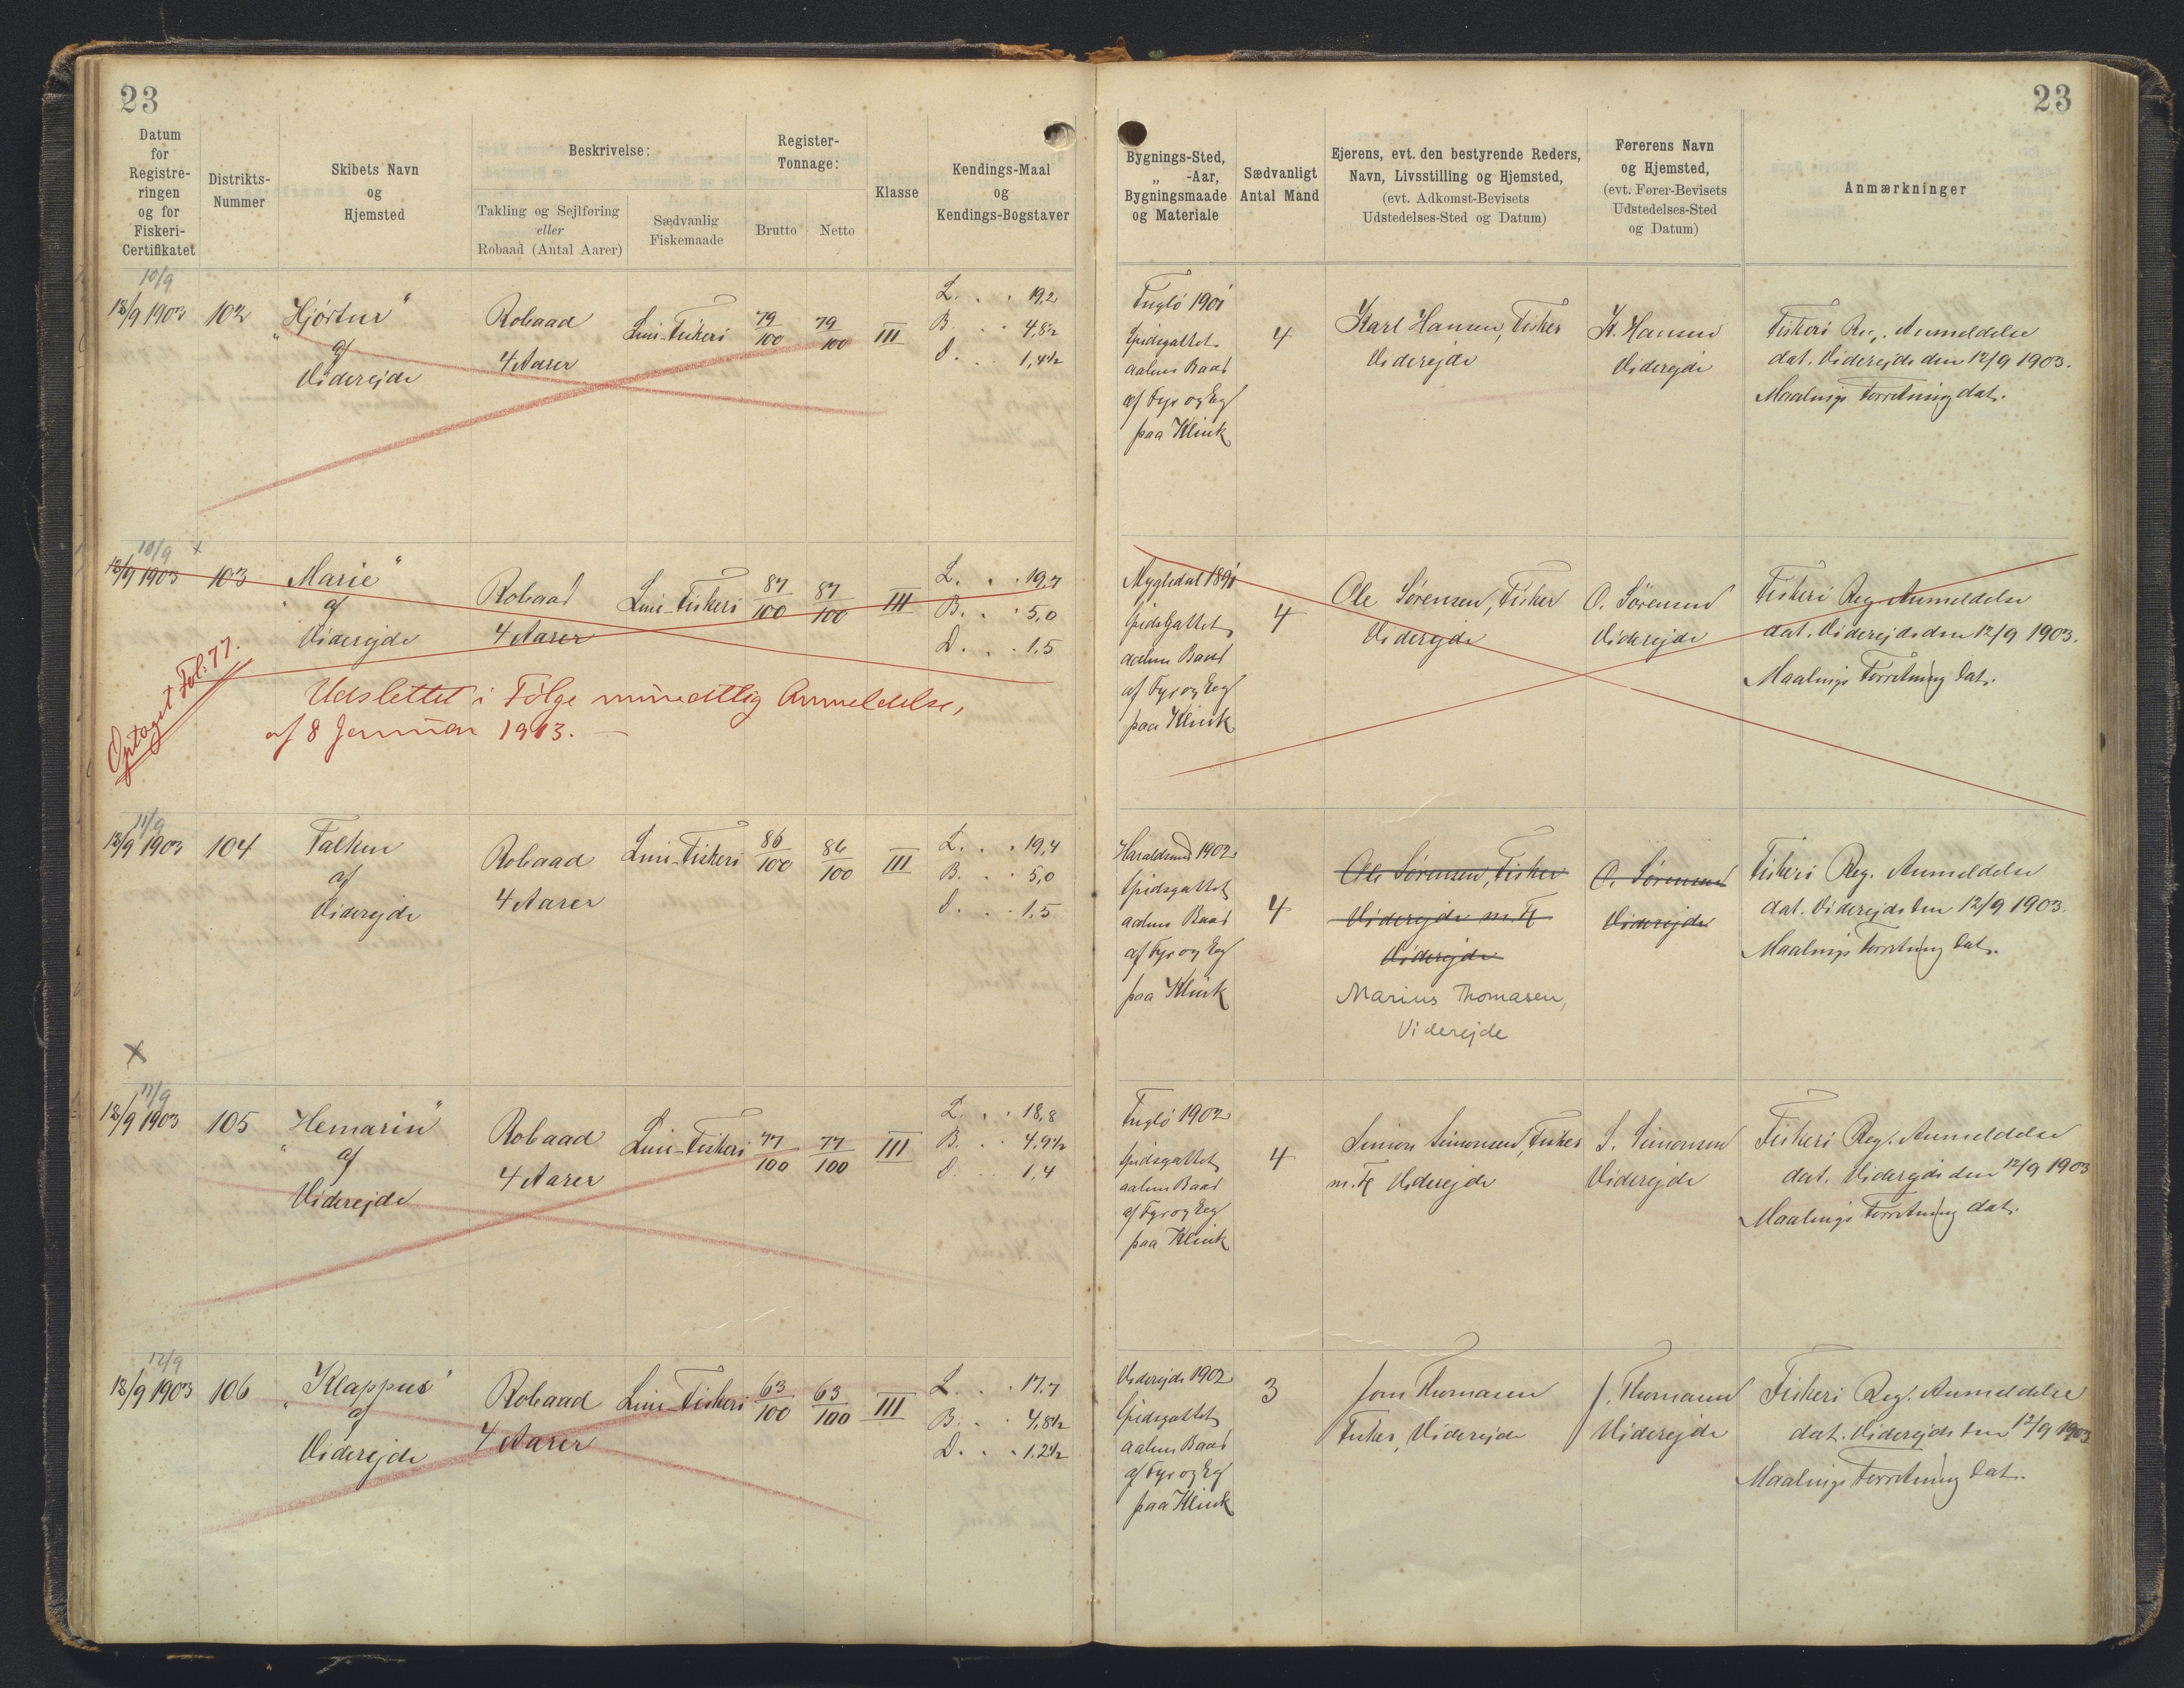 23
23
Datum
for
Registre-
ringen
og for
Fiskeri-
Certifikatet
Distrikts-
Nummer
Skibets Navn
og
Hjemsted
Beskrivelse:
Takling og Sejlføring
eller
Robaad (Antal Aarer)
Sædvanlig
Fiskemaade
Register-
Tonnage:
Brutto
Netto
Klasse
Kendings-Maal
og
Kendings-Bogstaver
Bygnings-Sted,
„ -Aar,
Bygningsmaade
og Materiale
Sædvanligt
Antal Mand
Ejerens, evt. den bestyrende Reders,
Navn, Livsstilling og Hjemsted,
(evt. Adkomst-Bevisets
Udstedelses-Sted og Datum)
Førerens Navn
og Hjemsted,
(evt. Fører-Bevisets
Udstedelses-Sted
og Datum)
Anmærkninger
10/9
12/9 1903
102
„Hjørtur“
af
Viderejde
Robaad
4 Aarer
Line-Fiskeri
79/100
79/100
III
L. . . 19,2
B. . . 4,8½
D. . . 1,4½
Fuglö 1901
Spidsgattet
aaben Baad
af Fyr og Eg
paa Klink
4
Karl Hansen, Fisker
Viderejde
K. Hansen
Viderejde
Fiskeri Reg. Anmeldelse
dat. Viderejde den 12/9 1903.
Maalings Forretning dat.
10/9 x
12/9 1903
103
„Marie“
af
Viderejde
Robaad
4 Aarer
Line-Fiskeri
87/100
87/100
III
L. . . 19,7
B. . . 5,0
D. . . 1,5
Mygledal 1891
Spidsgattet
aaben Baad
af Fyr og Eg
paa Klink
4
Ole Sørensen, Fisker
Viderejde
O. Sørensen
Viderejde
Fiskeri Reg. Anmeldelse
dat. Viderejde den 12/9 1903.
Maalings Forretning dat.
Optaget Fol: 77.
Udslettet i Følge mundtlig Anmeldelse,
af 8 Januar 1913. —
11/9
12/9 1903
104
Falken
af
Viderejde
Robaad
4 Aarer
Line-Fiskeri
86/100
86/100
III
L. . . 19,4
B. . . 5,0
D. . . 1,5
Haraldsund 1902
Spidsgattet
aaben Baad
af Fyr og Eg
paa Klink
4
Ole Sørensen, Fisker
Viderejde m. Fl
Viderejde
Marius Thomasen,
Viderejde
O. Sørensen
Viderejde
Fiskeri Reg. Anmeldelse
dat. Viderejde den 12/9 1903.
Maalings Forretning dat.
x
11/9
12/9 1903
105
„Hemarin“
af
Viderejde
Robaad
4 Aarer
Line-Fiskeri
77/100
77/100
III
L. . . 18,8
B. . . 4,9½
D. . . 1,4
Fuglö 1902
Spidsgattet
aaben Baad
af Fyr og Eg
paa Klink
4
Simon Simonsen, Fisker
m. Fl Viderejde
S. Simonsen
Viderejde
Fiskeri Reg. Anmeldelse
dat. Viderejde den 12/9 1903
Maalings Forretning dat.
12/9
12/9 1903
106
„Klappus“
af
Viderejde
Robaad
4 Aarer
Line-Fiskeri
63/100
63/100
III
L. . . 17.7
B. . . 4,8½
D. . . 1.2½
Viderejde 1902
Spidsgattet
aaben Baad
af Fyr og Eg
paa Klink
3
Jom Thomasen
Fisker, Viderejde
J. Thomasen
Viderejde
Fiskeri Reg. Anmeldelse
dat. Viderejde den 12/9 1903
Maalings Forretning dat.